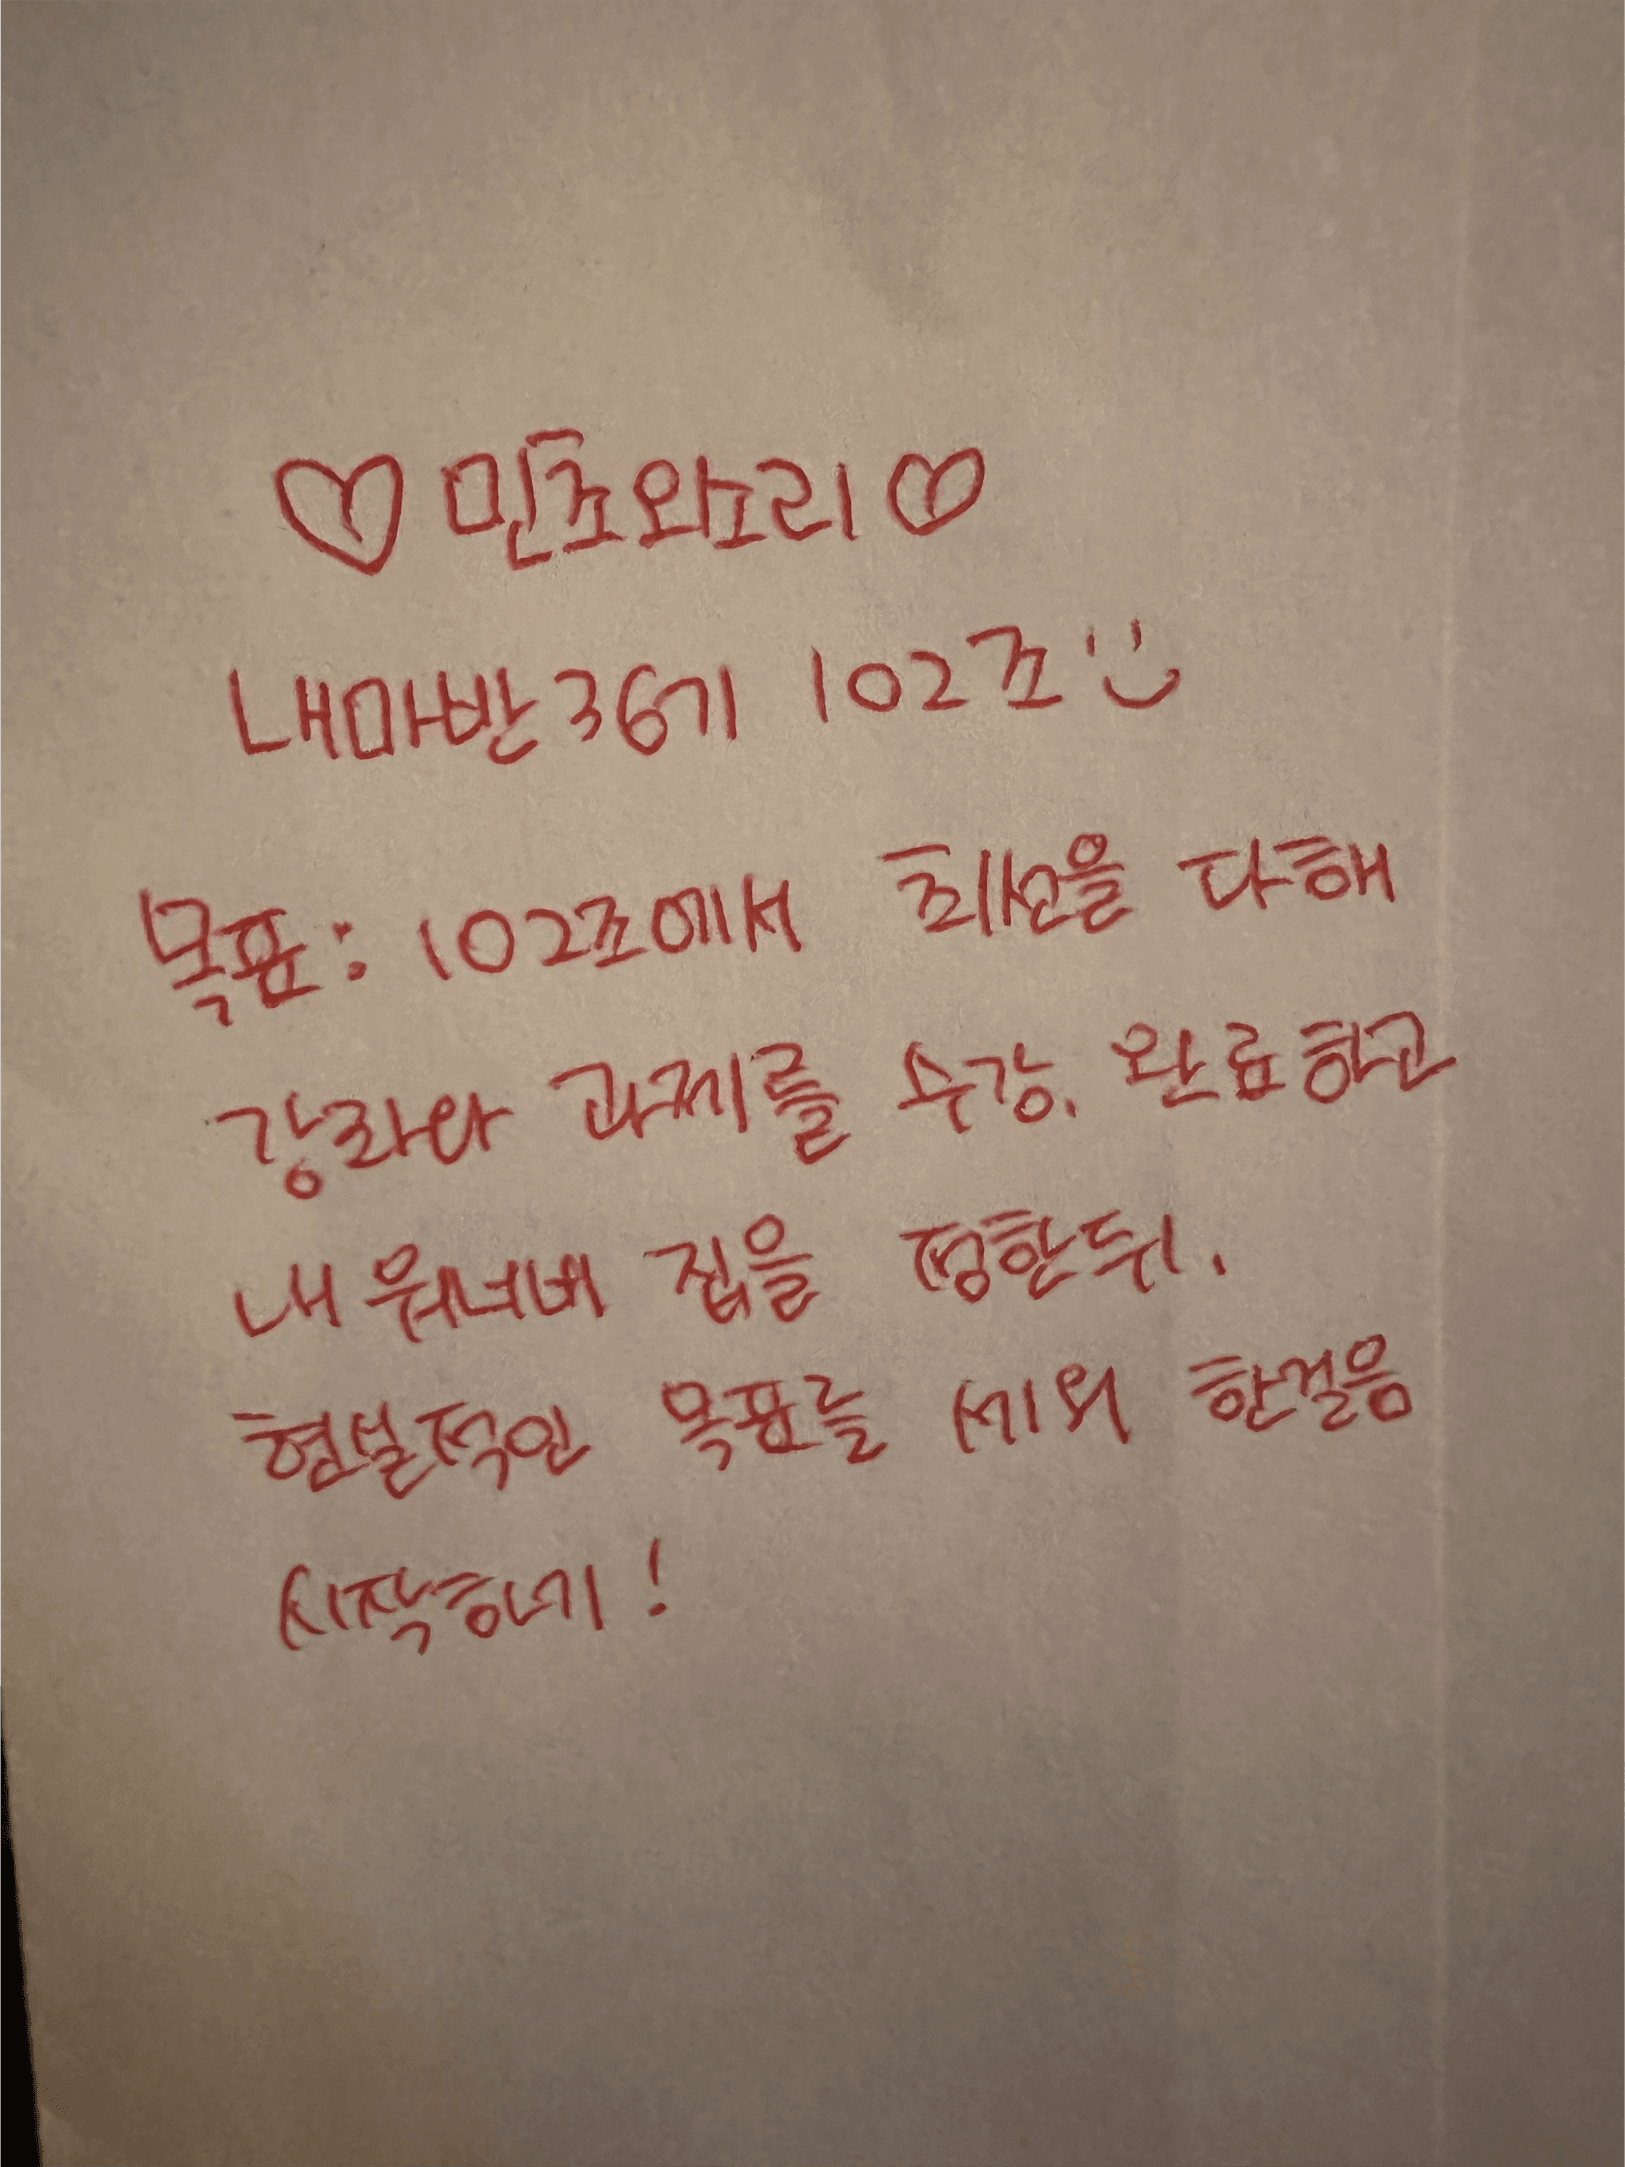 ♡ 민초와소리 ♡
내마반36기 102조 :)
목표: 102조에서 최선을 다해
강좌와 과제를 수강, 완료하고
내 워너비 집을 정한뒤,
현실적인 목표를 세워 한걸음
시작하기!